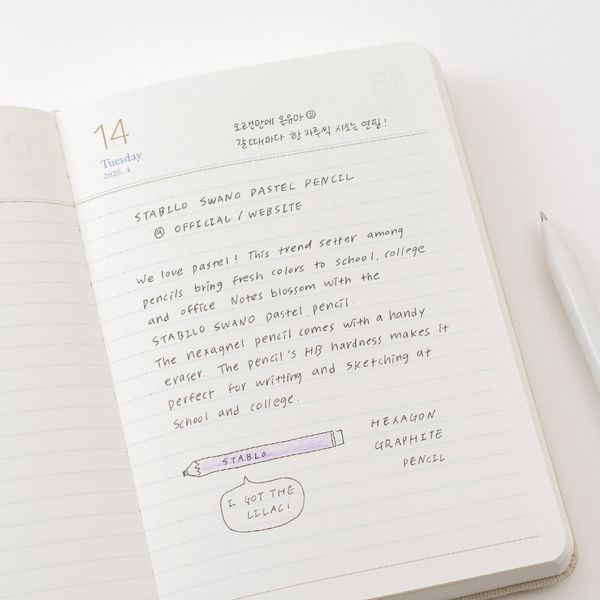 14
Tuesday
2026. 4
오랜만에 온유마
갈때마다 한 자루씩 사오는 연필!
STABILO SWANO PASTEL PENCIL
@ OFFICIAL / WEBSITE
We love pastel! This trend setter among
pencils bring fresh colors to school, college
and office Notes blossom with the
STABILO SWANO pastel pencil.
The hexagnel pencil comes with a handy
eraser. The pencil's HB hardness makes it
perfect for writting and sketching at
school and college.
STABLO
I GOT THE
LILAC!
HEXAGON
GRAPHITE
PENCIL